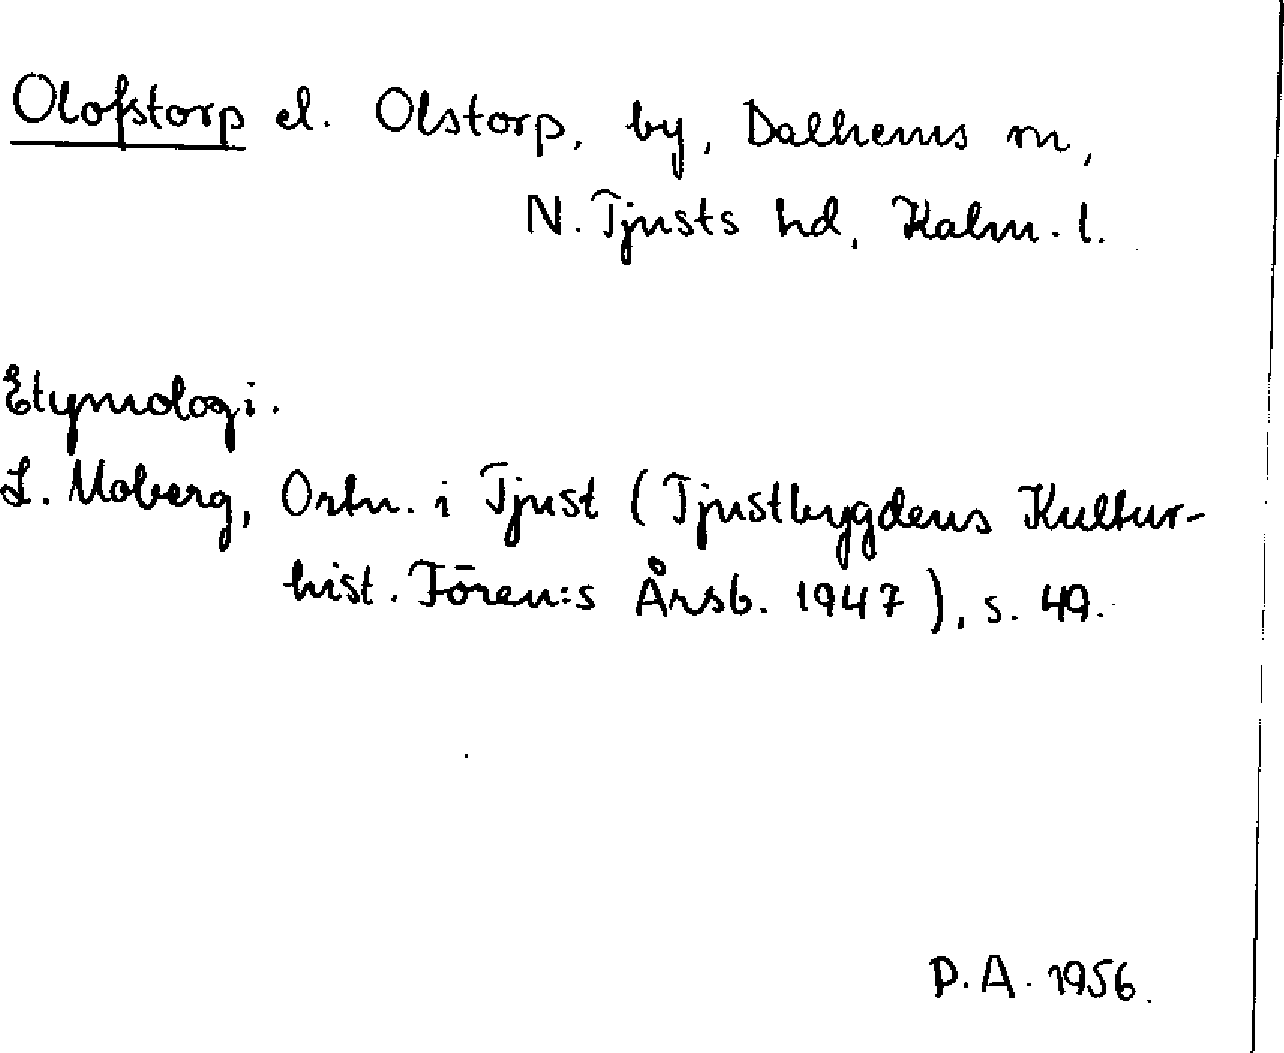 Olofstorp el. Olstorp, by, Dalhems sn,
N. Tjusts hd, Kalm. l.
Etymologi.
L. Moberg, Ortn. i Tjust (Tjustbygdens Kultur-
hist. Fören:s Årsb. 1947), s. 49.
P. A. 1956.